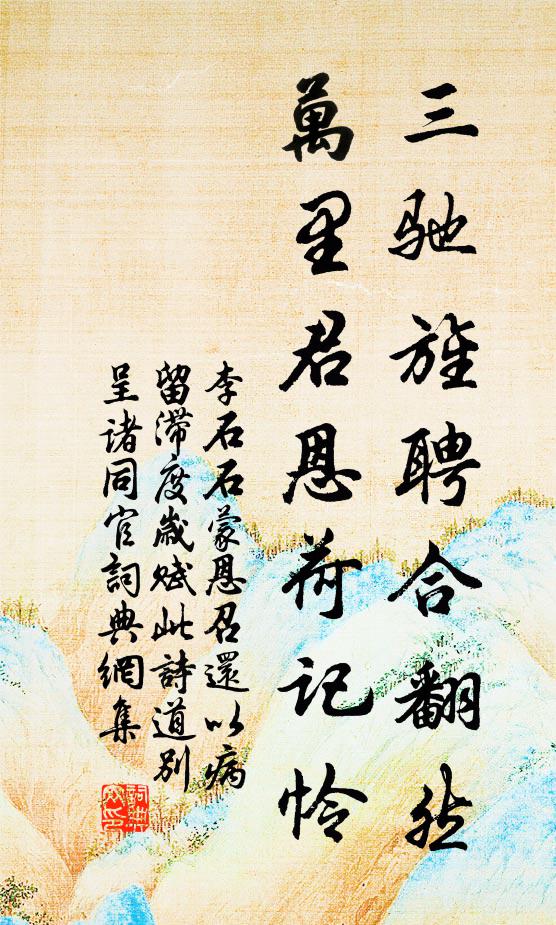 三驰旌聘合翻然
萬里君恩荷记怜
李石石蒙恩召還以病
留滞度歲赋此詩道别
呈诸同官詞典網集